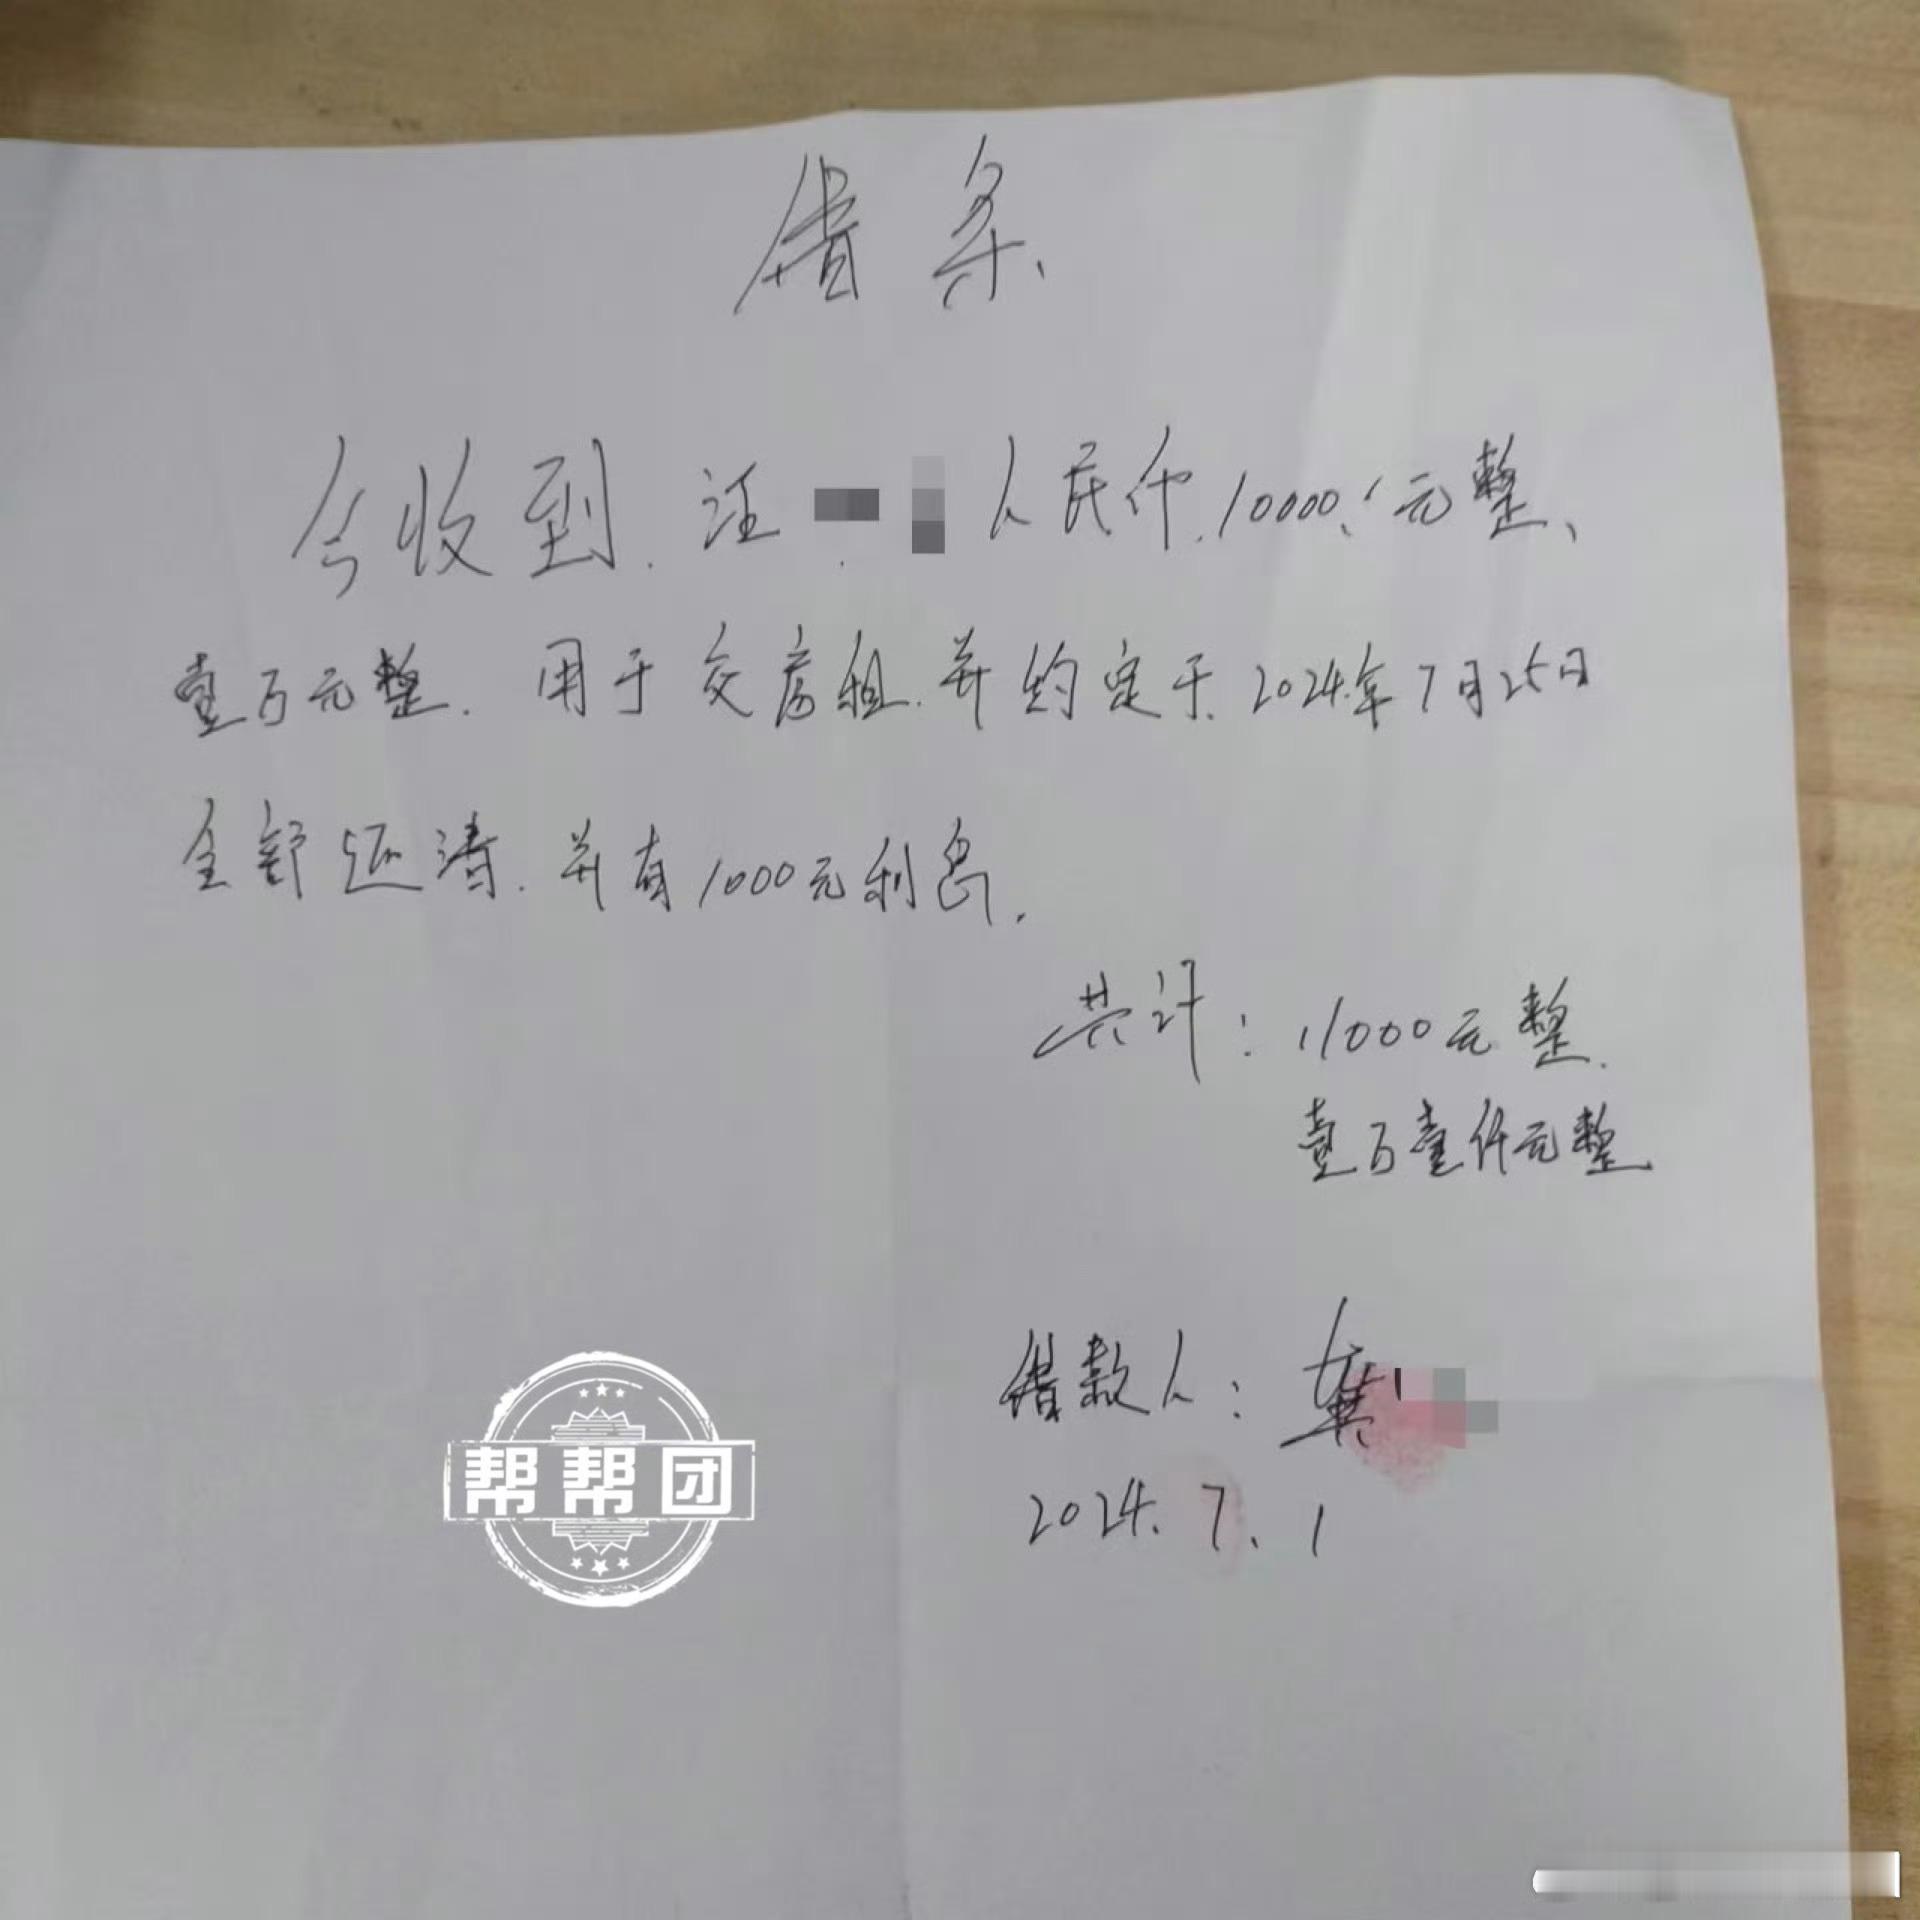 借条
今收到. 汪 人民币.10000.元整、
壹万元整. 用于交房租.并约定于.2024年7月25日
全部还清.并有1000元利息.
共计：11000元整.
壹万壹仟元整
借款人：龚
2024.7.1
帮帮团